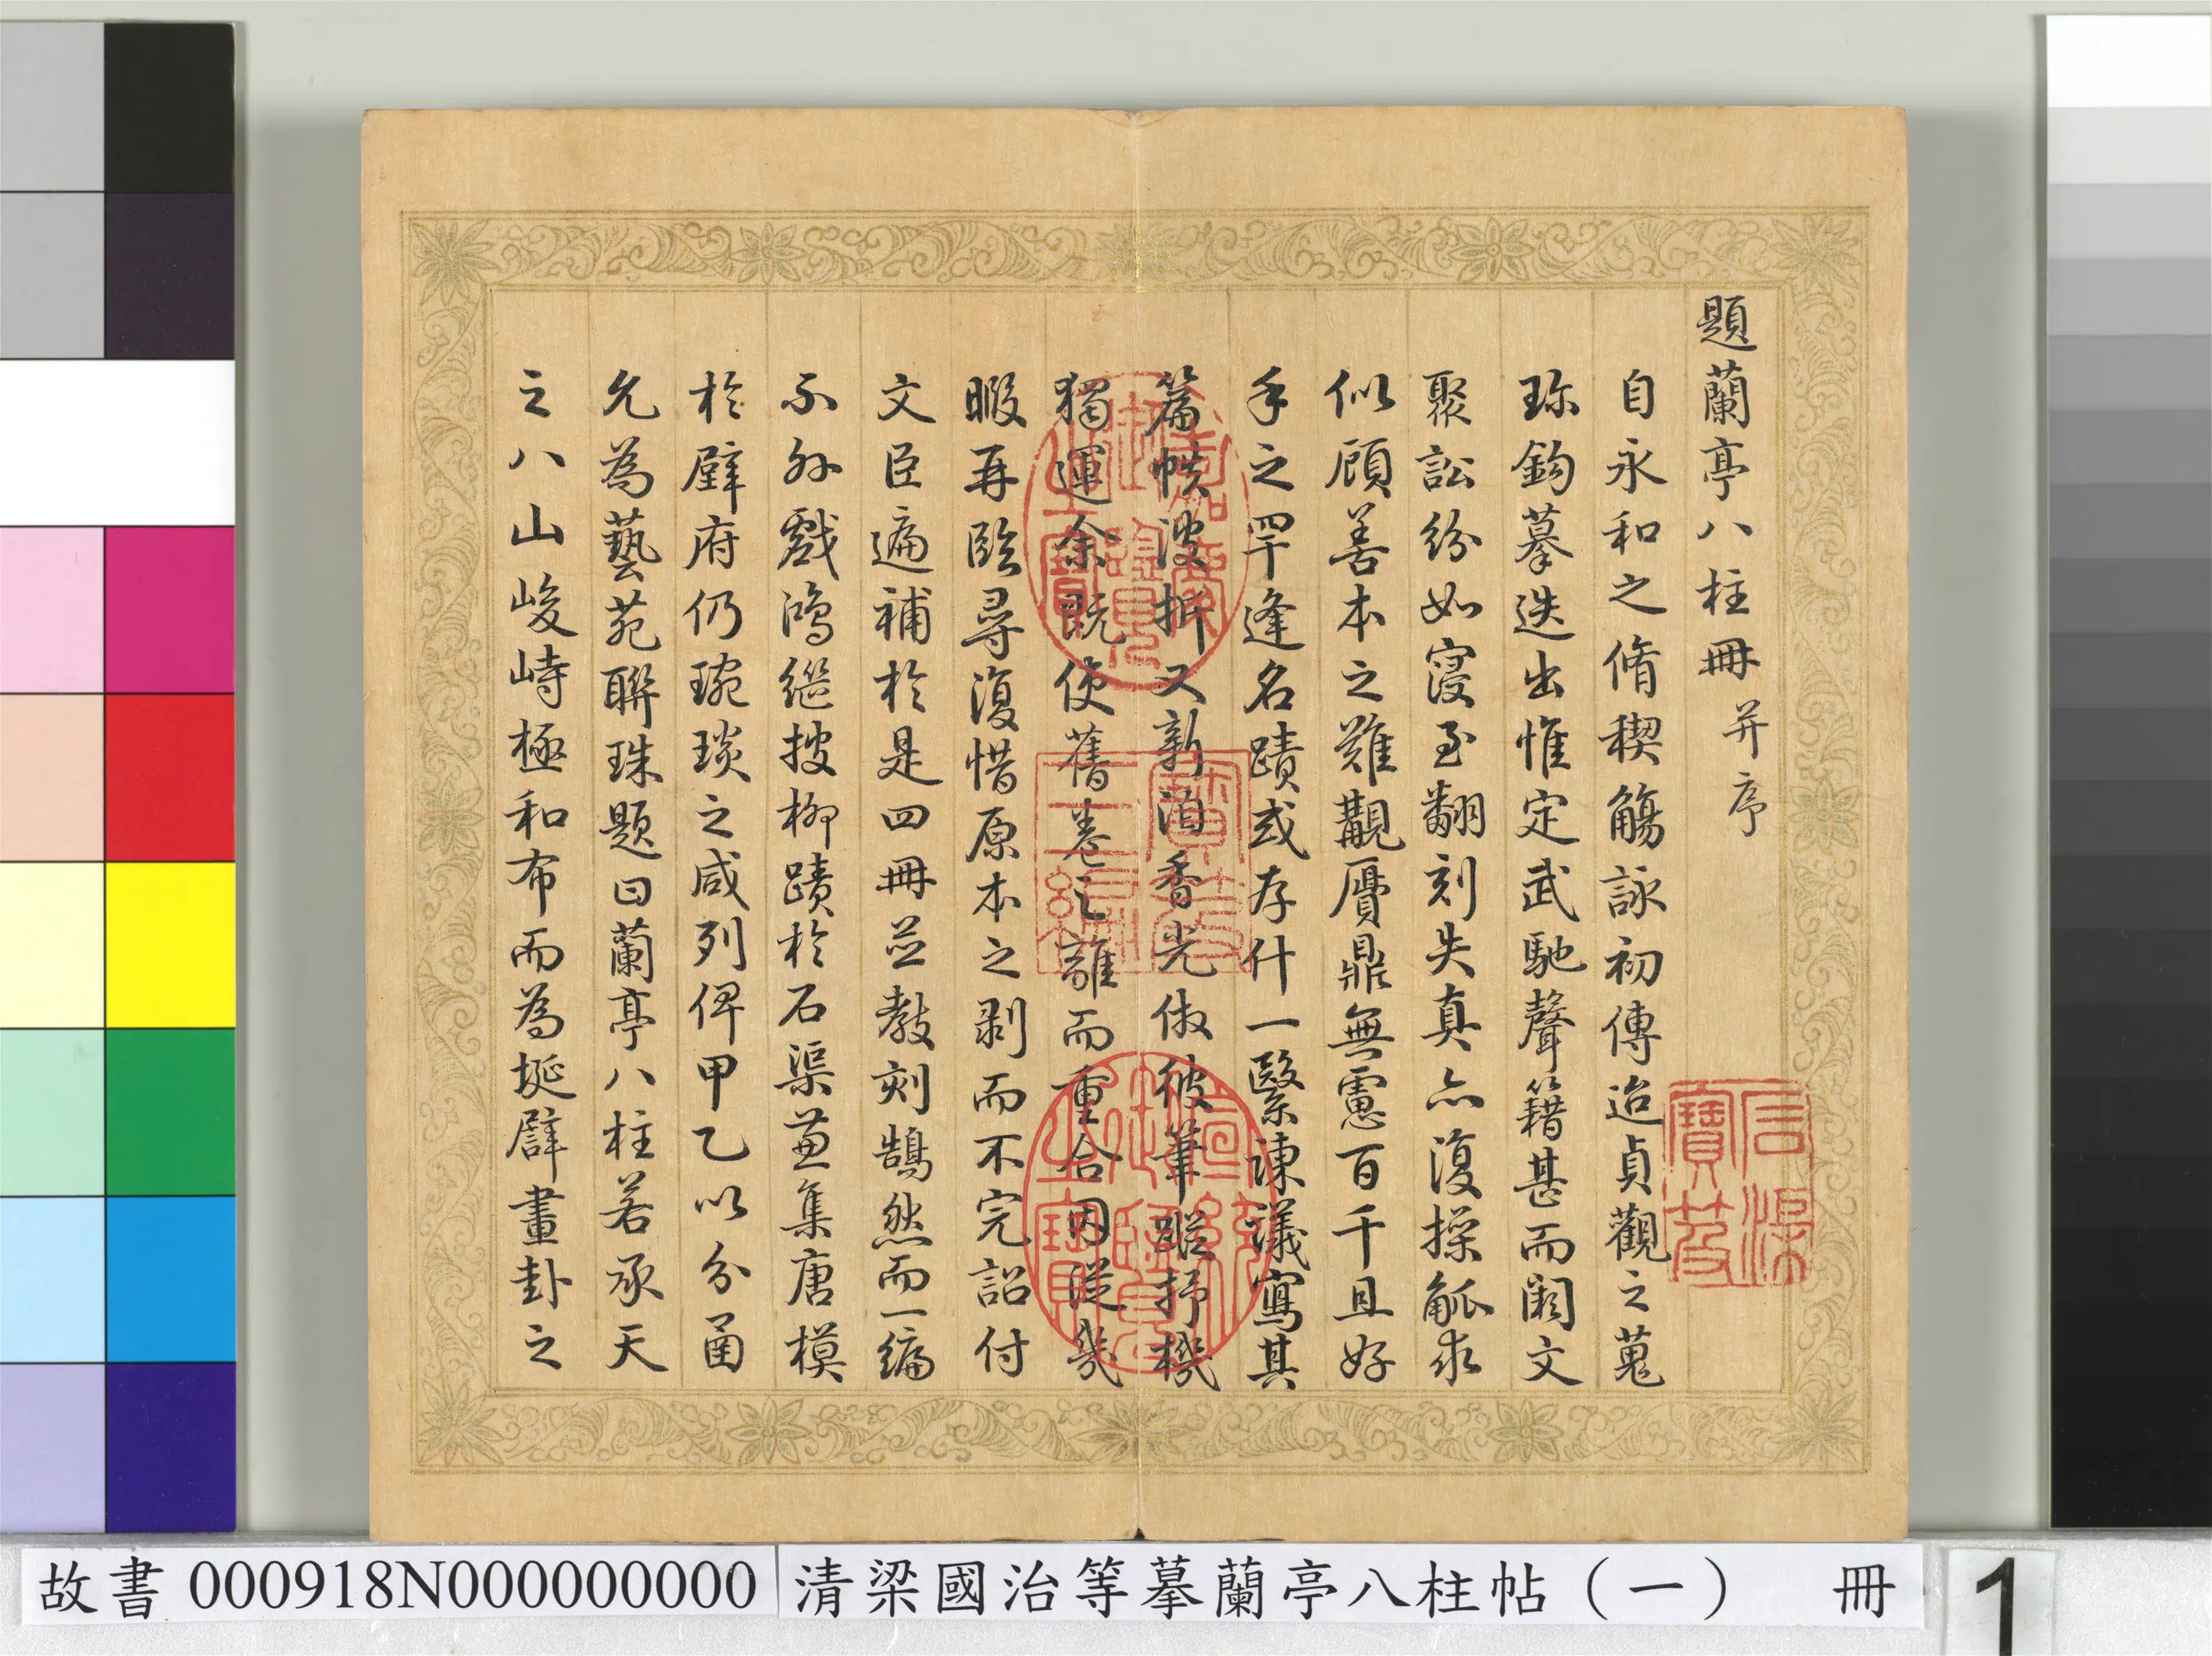 題蘭亭八柱冊并序
自永和之脩稧觴詠初傳迨貞觀之蒐
珎鈎摹迭出惟定武馳聲籍甚而闕文
聚訟紛如寖至翻刻失真亦復操觚求
似顧善本之難觀贋鼎無慮百千且好
手之罕逢名蹟或存什一緊諫議寫其
篇帙漫拆又新洎香光倣彼筆蹤抒機
獨運余既使舊卷之離而重合因從幾
暇再臨尋復惜原本之剥而不完詔付
文臣遍補於是四冊並教刻鵠然而一編
不外戲鴻繼搜柳蹟於石渠兼集唐模
於壁府仍琬琰之咸列俾甲乙以分函
允為藝苑聯珠題曰蘭亭八柱若承天
之八山峻峙極和布而為埏譬畫卦之
嘉慶御覽之寶
寶笈三編
宣統御覽之寶
石渠寶笈
故書000918N000000000 清梁國治等摹蘭亭八柱帖（一） 冊 1